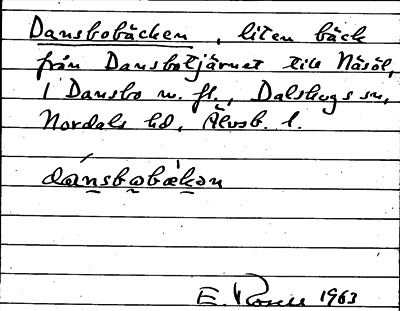 Dansbobäcken, liten bäck
från Dansbotjärnet till Näsöl,
i Dansbo m. fl., Dalskogs sn,
Nordals hd, Älvsb. l.
dánsbobækən
E. 1963